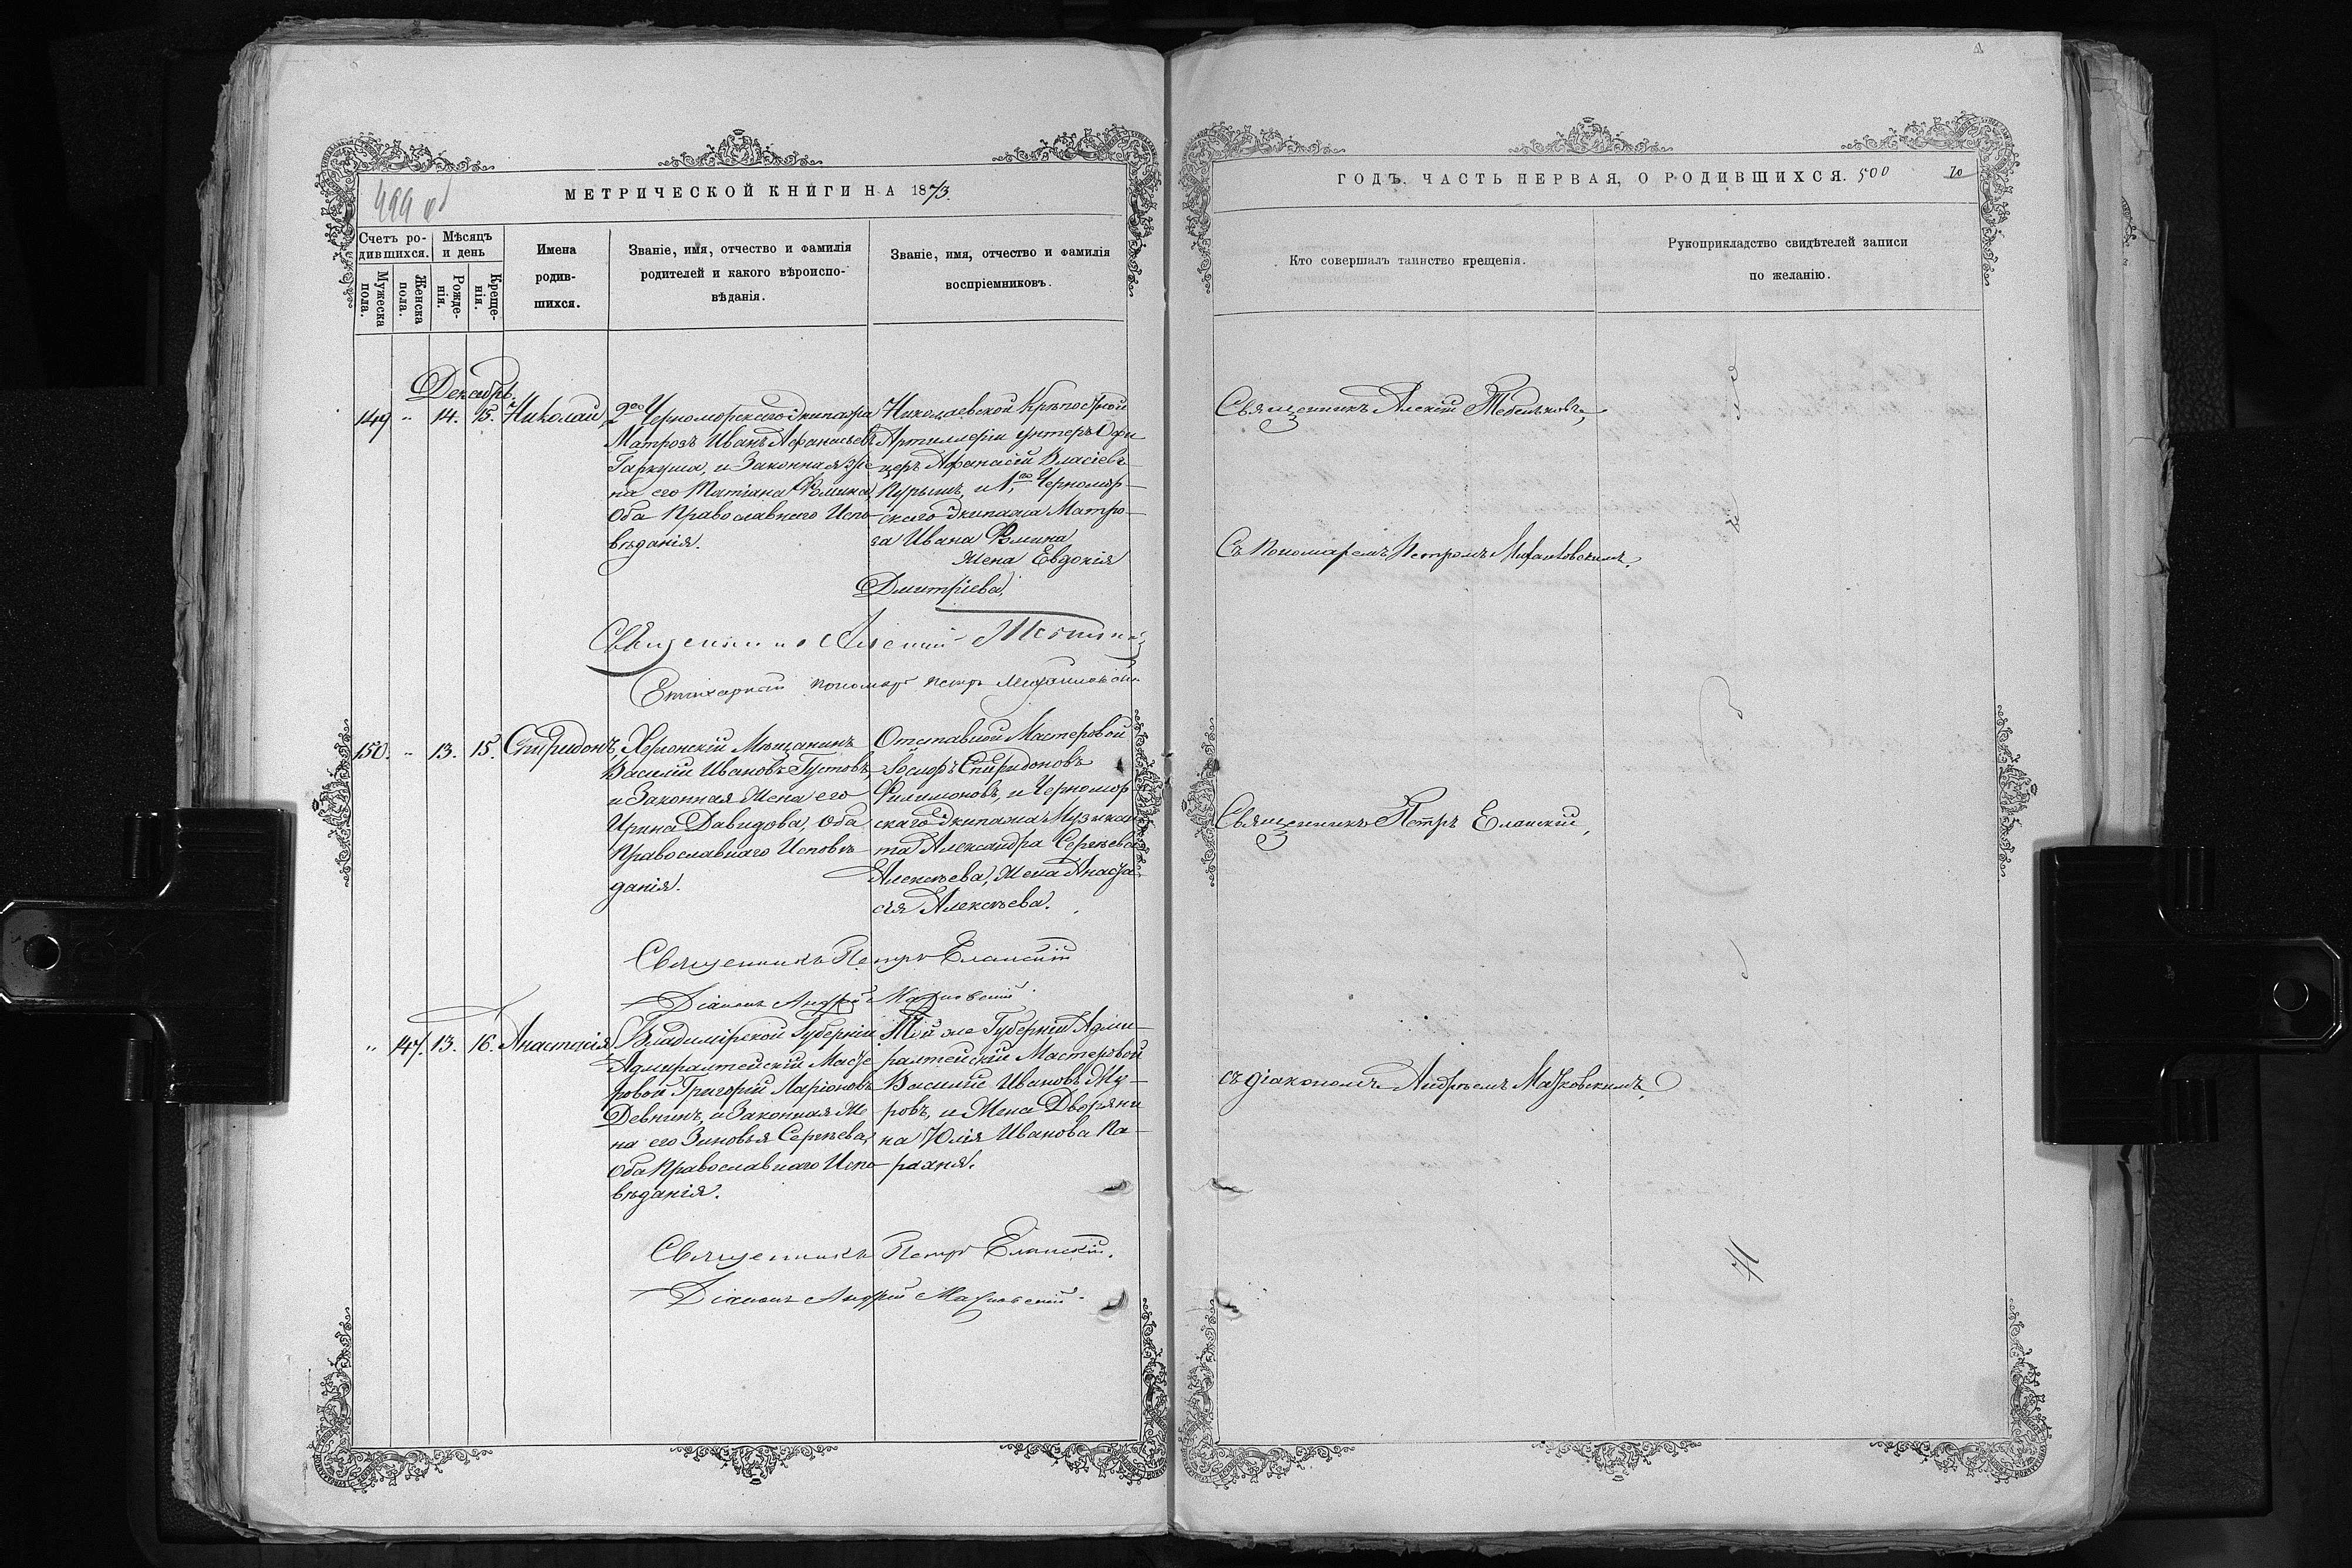 499 об
МЕТРИЧЕСКОЙ КНИГИ НА 1873.
Счетъ ро-
дившихся.
Мѣсяцъ
и день
Мужеска
пола.
Женска
пола.
Рожде-
нія.
Креще-
нія.
Имена
родив-
шихся.
Званіе, имя, отчество и фамилія
родителей и какого вѣроиспо-
вѣданія.
Званіе, имя, отчество и фамилія
воспріемниковъ.
Декабрь.
149 " 14. 15. Николай,
2го Черноморскаго Экипажа
Матросъ Иванъ Афанасьевъ
Гаркуша, и Законная Же
на его Татіана Фомина,
Оба Православнаго Испо-
вѣданія.
Николаевской Крѣпостной
Артиллеріи унтеръ Офи
церъ Афанасій Власіевъ
и 1го Черномор-
скаго Экипажа Матро-
за Ивана Фомина
Жена Евдокія
Дмитріева,
Священникъ Алексій
Стихарный пономарь Петръ
150. " 13. 15. Спиридонъ,
Херсонскій Мѣщанинъ
Василій Ивановъ Густовъ,
и Законная Жена его
Ирина Давидова, Оба
Православнаго Исповѣ-
данія.
Отставной Мастеровой
Іосифъ Спиридоновъ
Филимоновъ, и Черномор
скаго Экипажа Музыкан
та Александра Сергѣева
Алексѣева, Жена Анаста
сія Алексѣева.
Священникъ Петръ Еланскій
Діаконъ Андрей Матковскій
" 147. 13. 16. Анастасія,
Владимірской Губерніи
Адмиралтейскій Масте
ровой Григорій Ларіоновъ
Девнинъ, и Законная Же
на его Зиновья Сергѣева,
Оба Православнаго Испо-
вѣданія.
Той же Губерніи Адми-
ралтейскій Мастеровой
Василій Ивановъ Му-
ровъ, и Жена Дворяни
на Юлія Иванова Ка-
Священникъ Петръ Еланскій.
Діаконъ Андрей Матковскій.
ГОДЪ. ЧАСТЬ ПЕРВАЯ, О РОДИВШИХСЯ. 500
70
Кто совершалъ таинство крещенія.
Рукоприкладство свидѣтелей записи
по желанію.
Священникъ Алексій
Съ Пономаремъ Петромъ
Священникъ Петръ Еланскій,
съ діакономъ Андреемъ Матковскимъ,